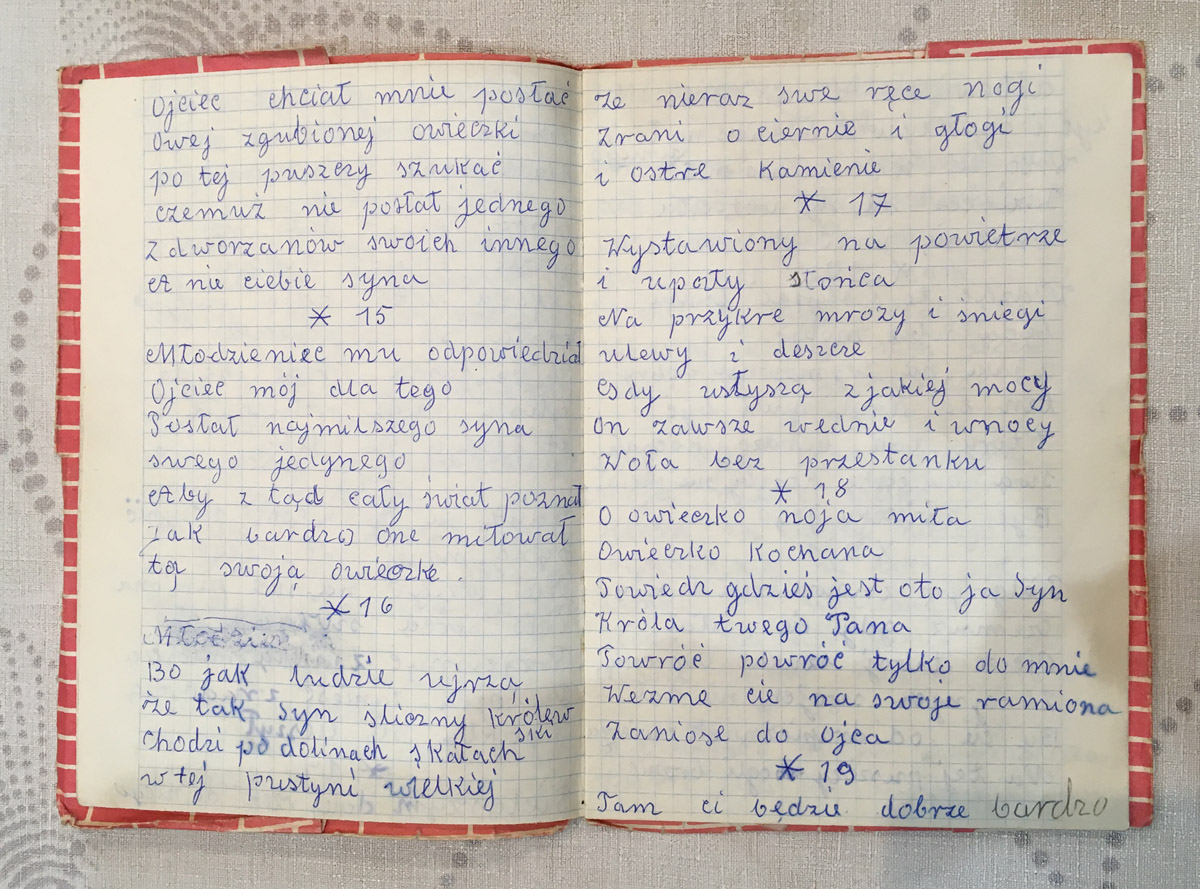 Ojciec chciał mnie posłać
Owej zgubionej owieczki
po tej puszczy szukać
czemuż nie posłał jednego
z dworzanów swoich innego
A nie ciebie syna
* 15
Młodzieniec mu odpowiedział
Ojciec mój dla tego
Posłał najmilszego syna
swego jedynego
Aby z tąd cały świat poznał
jak bardzo one miłował
tę swoją owieczke.
* 16
Młodzie
Bo jak ludzie ujrzą
że tak syn sliczny królewski
chodzi po dolinach skałach
w tej pustyni wielkiej
że nieraz swe ręce nogi
zrani o ciernie i głogi
i ostre kamienie
* 17
Wystawiony na powietrze
i upały słońca
Na przykre mrozy i śniegi
ulewy i deszcze
Gdy usłyszą z jakiej mocy
On zawsze wednie i wnocy
Woła bez przestanku
* 18
O owieczko moja miła
Owieczko kochana
Powiedz gdzieś jest oto ja Syn
Króla twego Pana
Powróć powróć tylko do mnie
Wezmę cie na swoje ramiona
Zaniose do ojca
* 19
Tam ci będzie dobrze bardzo